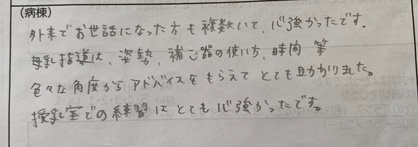 (病棟)
外来でお世話になった方も複数いて、心強かったです。
母乳指導は、姿勢、補乳器の使い方、時間 等
色々な角度からアドバイスをもらえてとても助かりました。
授乳室での練習はとても心強かったです。